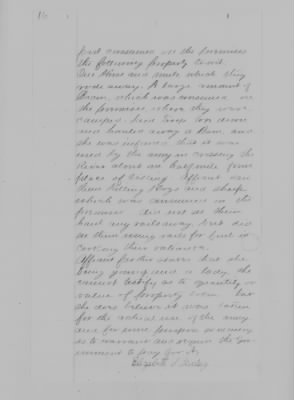 16
and consumed on the premises
the following property to wit.
One Horse and mule which they
rode away. A large amount of
Corn, which was consumed on
the premises where they were
camped. Said troops tore down
and hauled away a Barn, and
she was informed that it was
used by the army in crossing the
River about one half mile from
place of taking. Affiant saw
them killing Hogs and sheep
which was consumed on the
premises did not see them
haul any rails away, but did
see them using rails for fuel in
cooking their rations.
Affiant further states that she
being young and a lady, she
cannot testify as to quantity or
value of property taken but
she does believe it was taken
for the actual use of the army
and for such purpose or
as to warrant and require the Gov-
ernment to pay for it.
Elizabeth S.